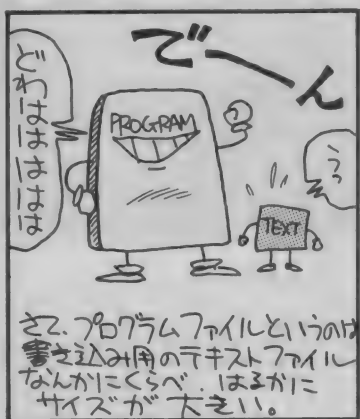 でーん
どわはははははは
PROGRAM
うっ
TEXT
さて、プログラムファイルというのは
書き込み用のテキストファイル
なんかにくらべ、はるかに
サイズが大きい。